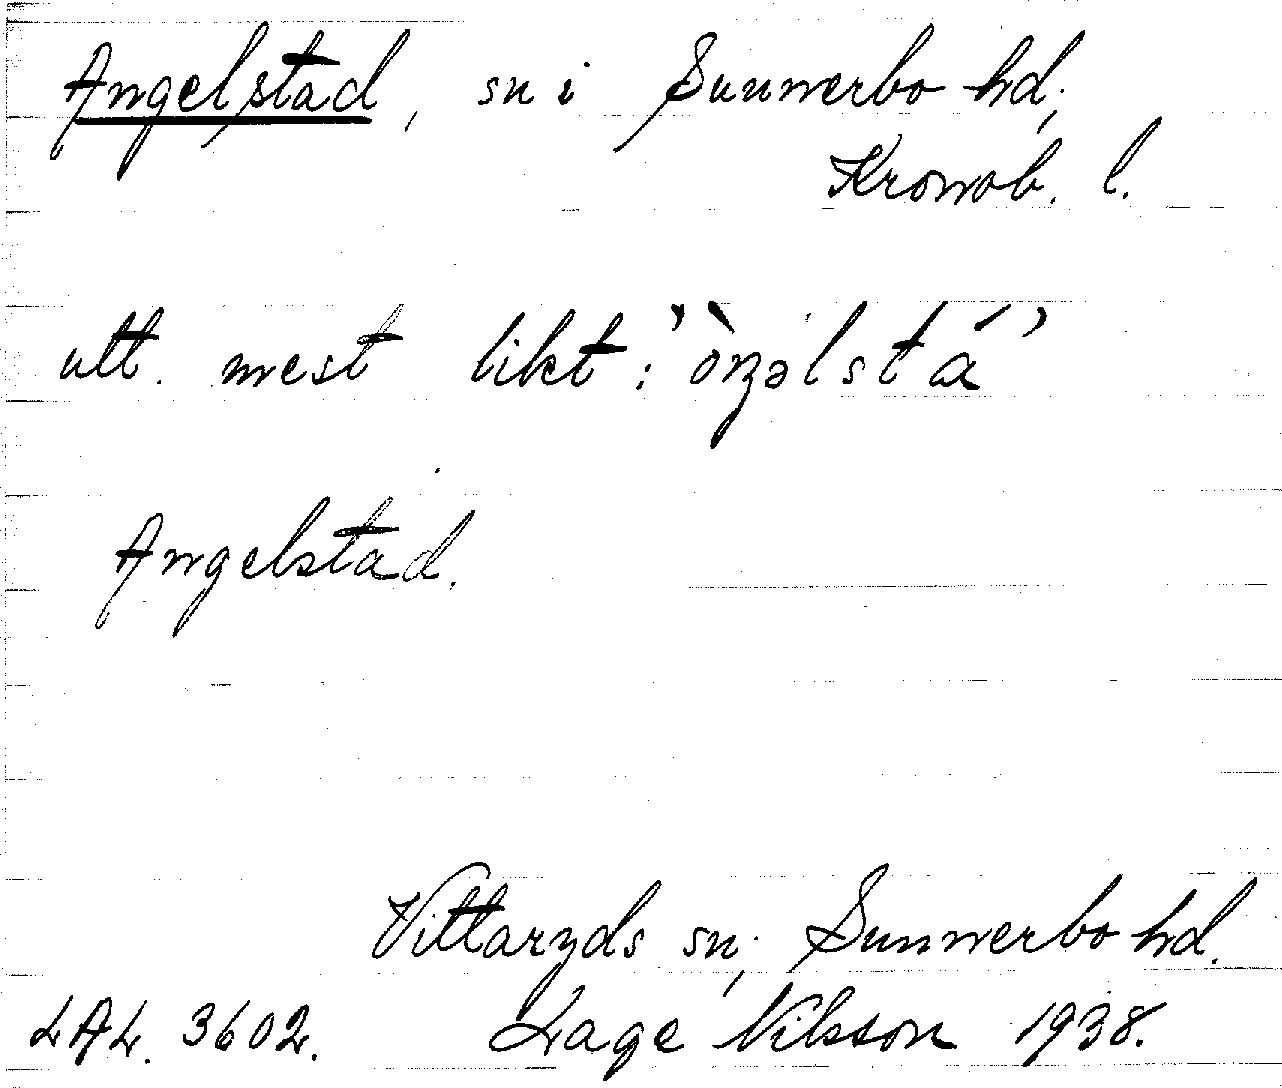 Angelstad, sn i Sunnerbo hd,
Kronob. l.
utt. mest likt: 
Angelstad.
Vittaryds sn, Sunnerbo hd.
LAL. 3602. Lage Nilsson 1938.